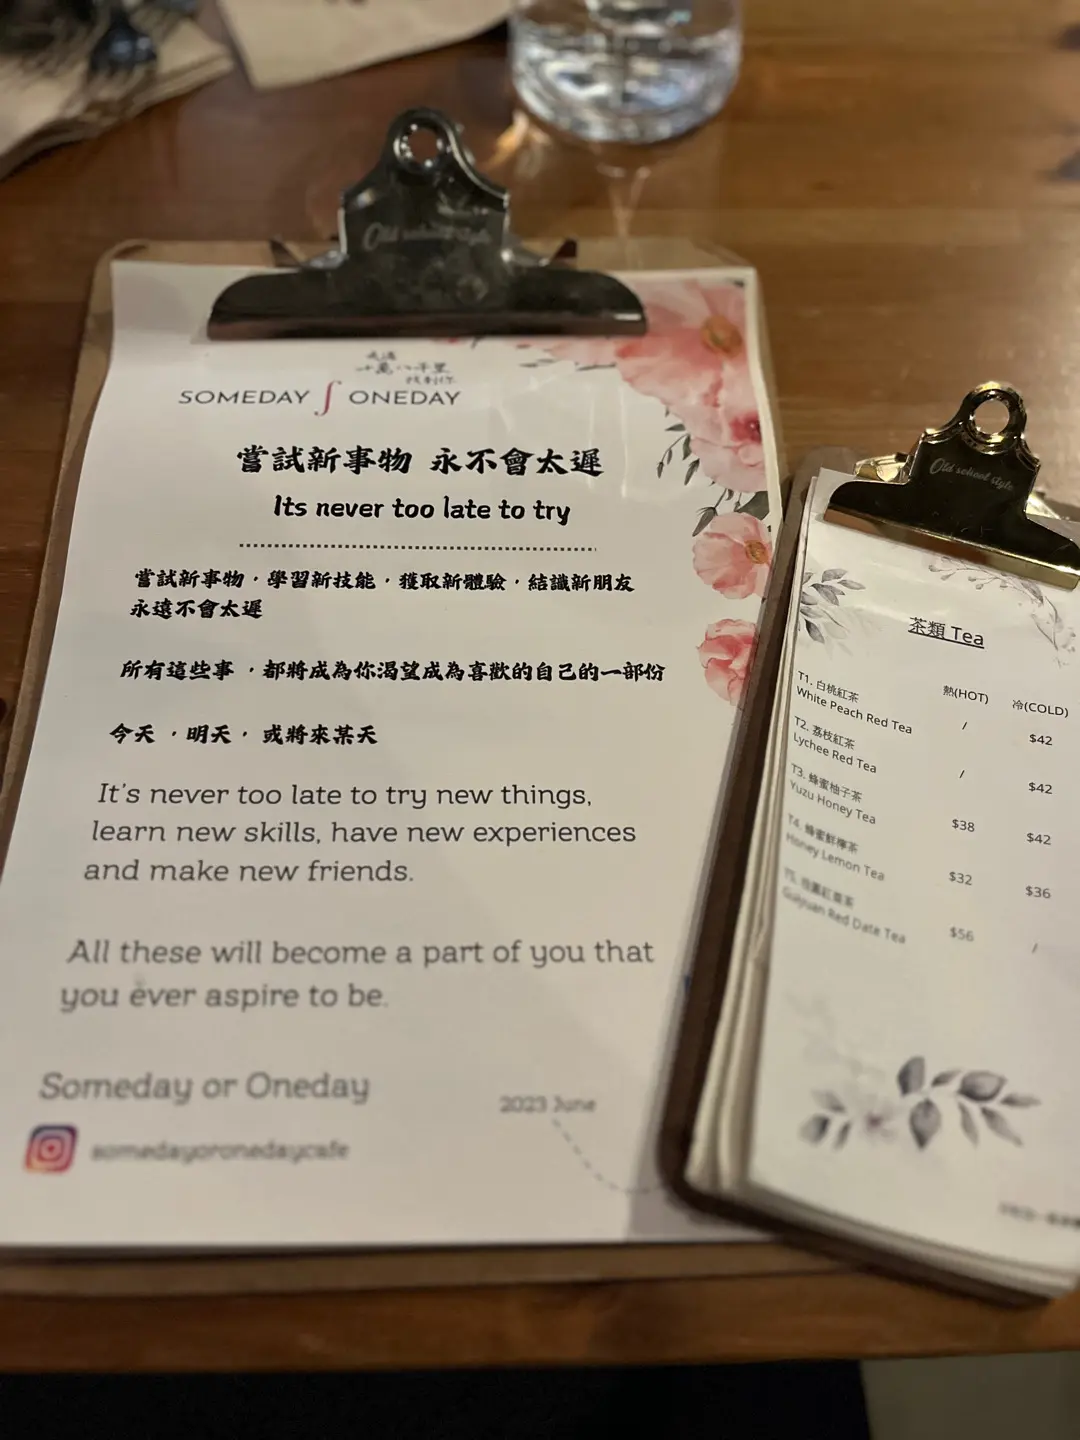 Old school style
走過
十萬八千里
找到你
SOMEDAY ∫ ONEDAY
嘗試新事物 永不會太遲
Its never too late to try
嘗試新事物，學習新技能，獲取新體驗，結識新朋友
永遠不會太遲
所有這些事，都將成為你渴望成為喜歡的自己的一部份
今天，明天，或將來某天
It's never too late to try new things,
learn new skills, have new experiences
and make new friends.
All these will become a part of you that
you ever aspire to be.
Someday or Oneday
2023 June
somedayoronedaycafe
Old school style
茶類 Tea
熱(HOT) 冷(COLD)
T1. 白桃紅茶
White Peach Red Tea / $42
T2. 荔枝紅茶
Lychee Red Tea / $42
T3. 蜂蜜柚子茶
Yuzu Honey Tea $38 $42
T4. 蜂蜜鮮檸茶
Honey Lemon Tea $32 $36
T5. 桂圓紅棗茶
Guiyuan Red Date Tea $56 /